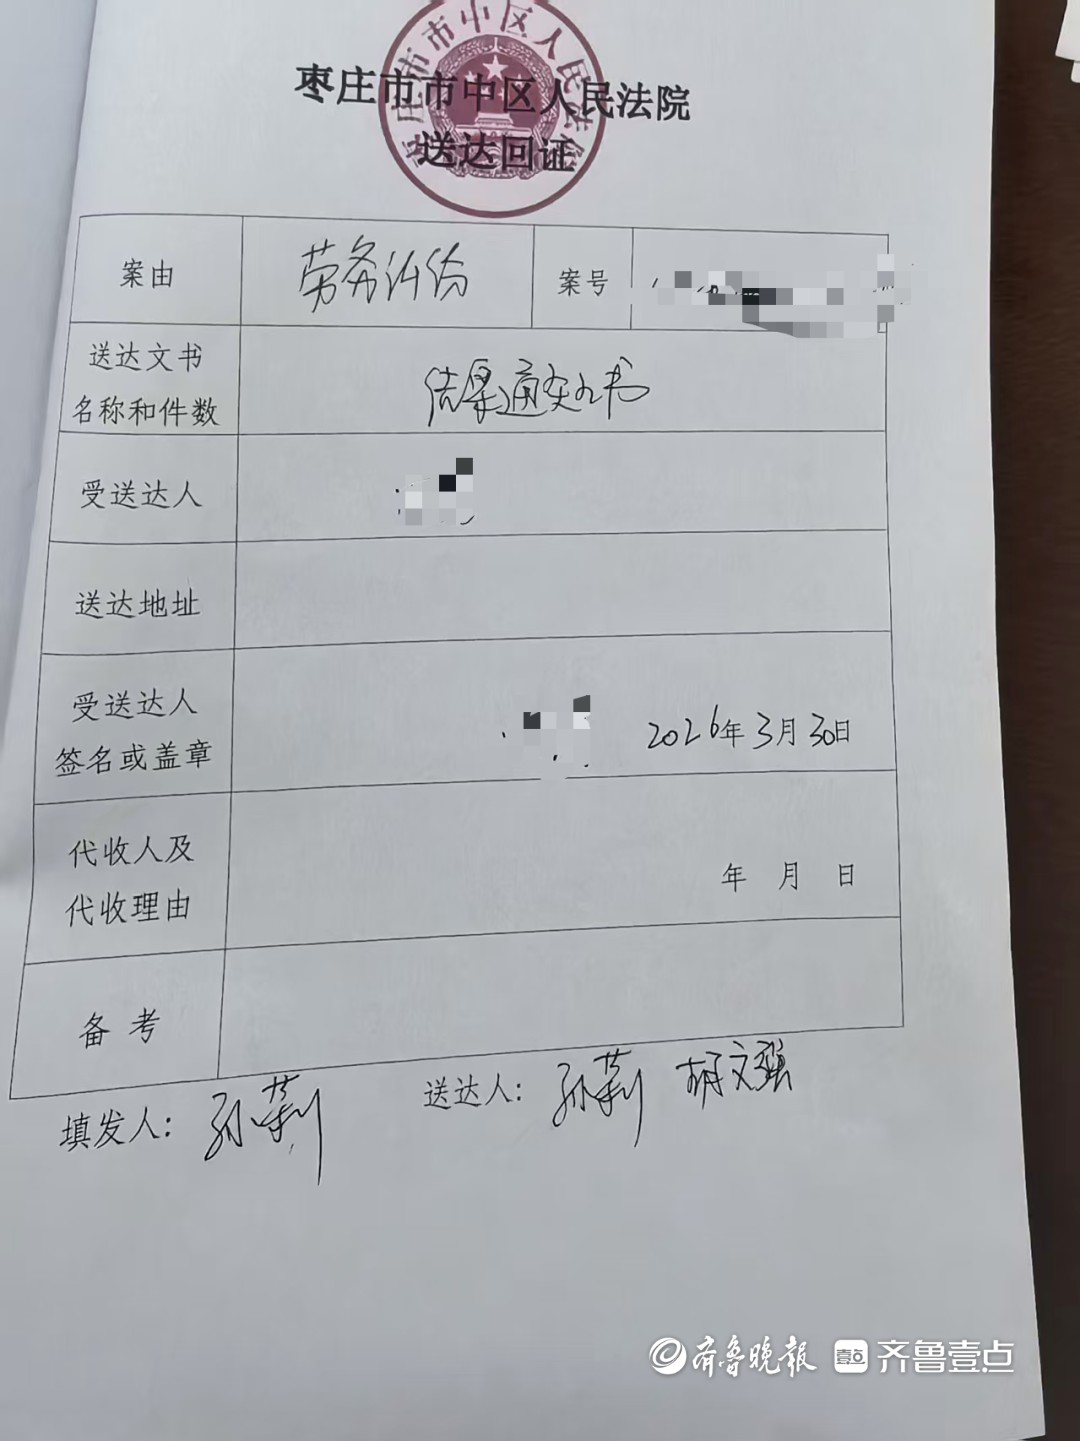 枣庄市市中区人民法院
枣庄市市中区人民法院
送达回证
案由 劳务纠纷 案号
送达文书
名称和件数 结果通知书
受送达人
送达地址
受送达人
签名或盖章 2026年3月30日
代收人及
代收理由 年 月 日
备考
填发人: 孙莉 送达人: 孙莉 胡文强
齐鲁晚报 壹点 齐鲁壹点